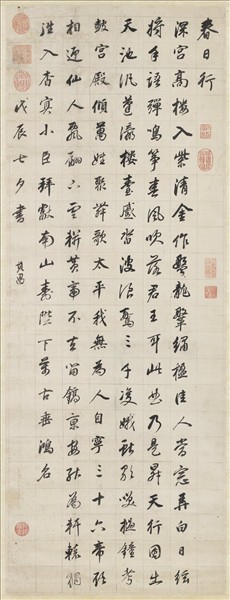 春日行
深宮高樓入紫清金作蛟龍盤繡楹佳人當窓弄白日絃
將手語彈鳴箏春風吹落君王耳此曲乃是昇天行因出
天池汎蓬瀛樓臺蹙沓波浪驚三千雙蛾獻歌笑撾鐘考
鼓宮殿傾萬姓聚舞歌太平我無為人自寧三十六帝欲
相迎仙人飄翩下雲軿黃帝不去留鎬京安能為軒轅獨
往入窅冥小臣拜獻南山壽陛下萬古垂鴻名
戊辰七夕書
其昌